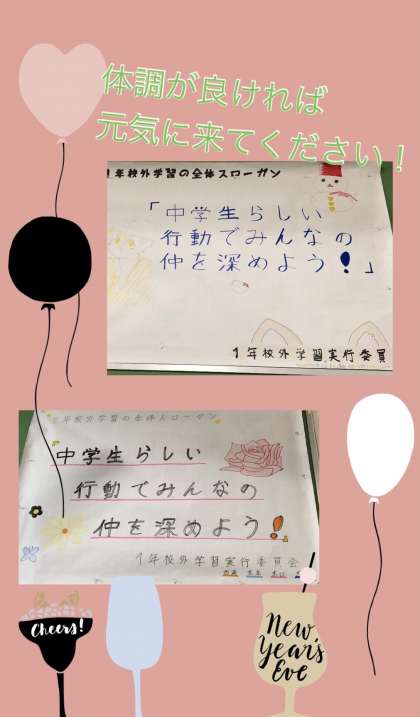 体調が良ければ
元気に来てください！
1年校外学習の全体スローガン
「中学生らしい
行動でみんなの
仲を深めよう！」
1年校外学習実行委員
年校外学習の全体スローガン
中学生らしい
行動でみんなの
仲を深めよう！
1年校外学習実行委員会
Cheers!
New
Year's
Eve